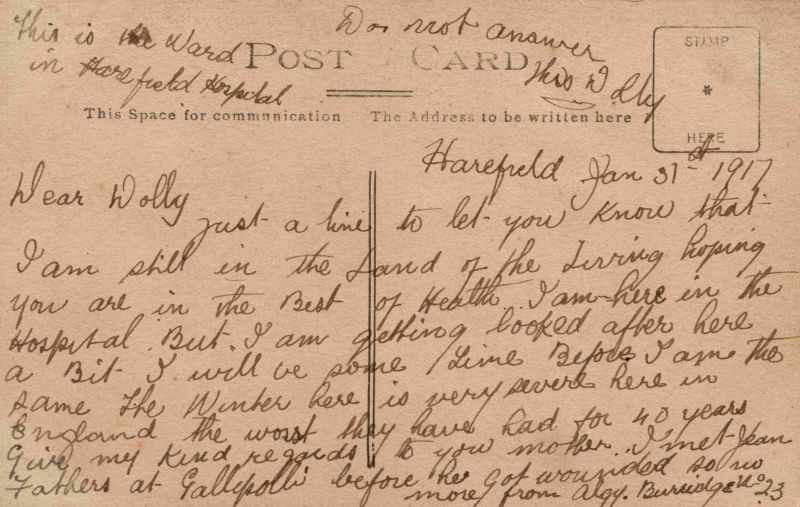 This is the Ward
in Harefield Hospital
Do not answer
this Dolly
POST CARD
STAMP
HERE
This Space for communication
The Address to be written here
Harefield Jan 31st 1917
Dear Dolly
just a line to let you know that
I am still in the Land of the Living hoping
you are in the Best of Health. I am here in the
Hospital. But. I am getting looked after here
a Bit I will be some time Before I am the
same The Winter here is very severe here in
England the worst they have had for 40 years
Give my kind regards to you mother. I met Jean
Fathers at Gallipolli before he got wounded so no
more from Algy. Burridge No 23